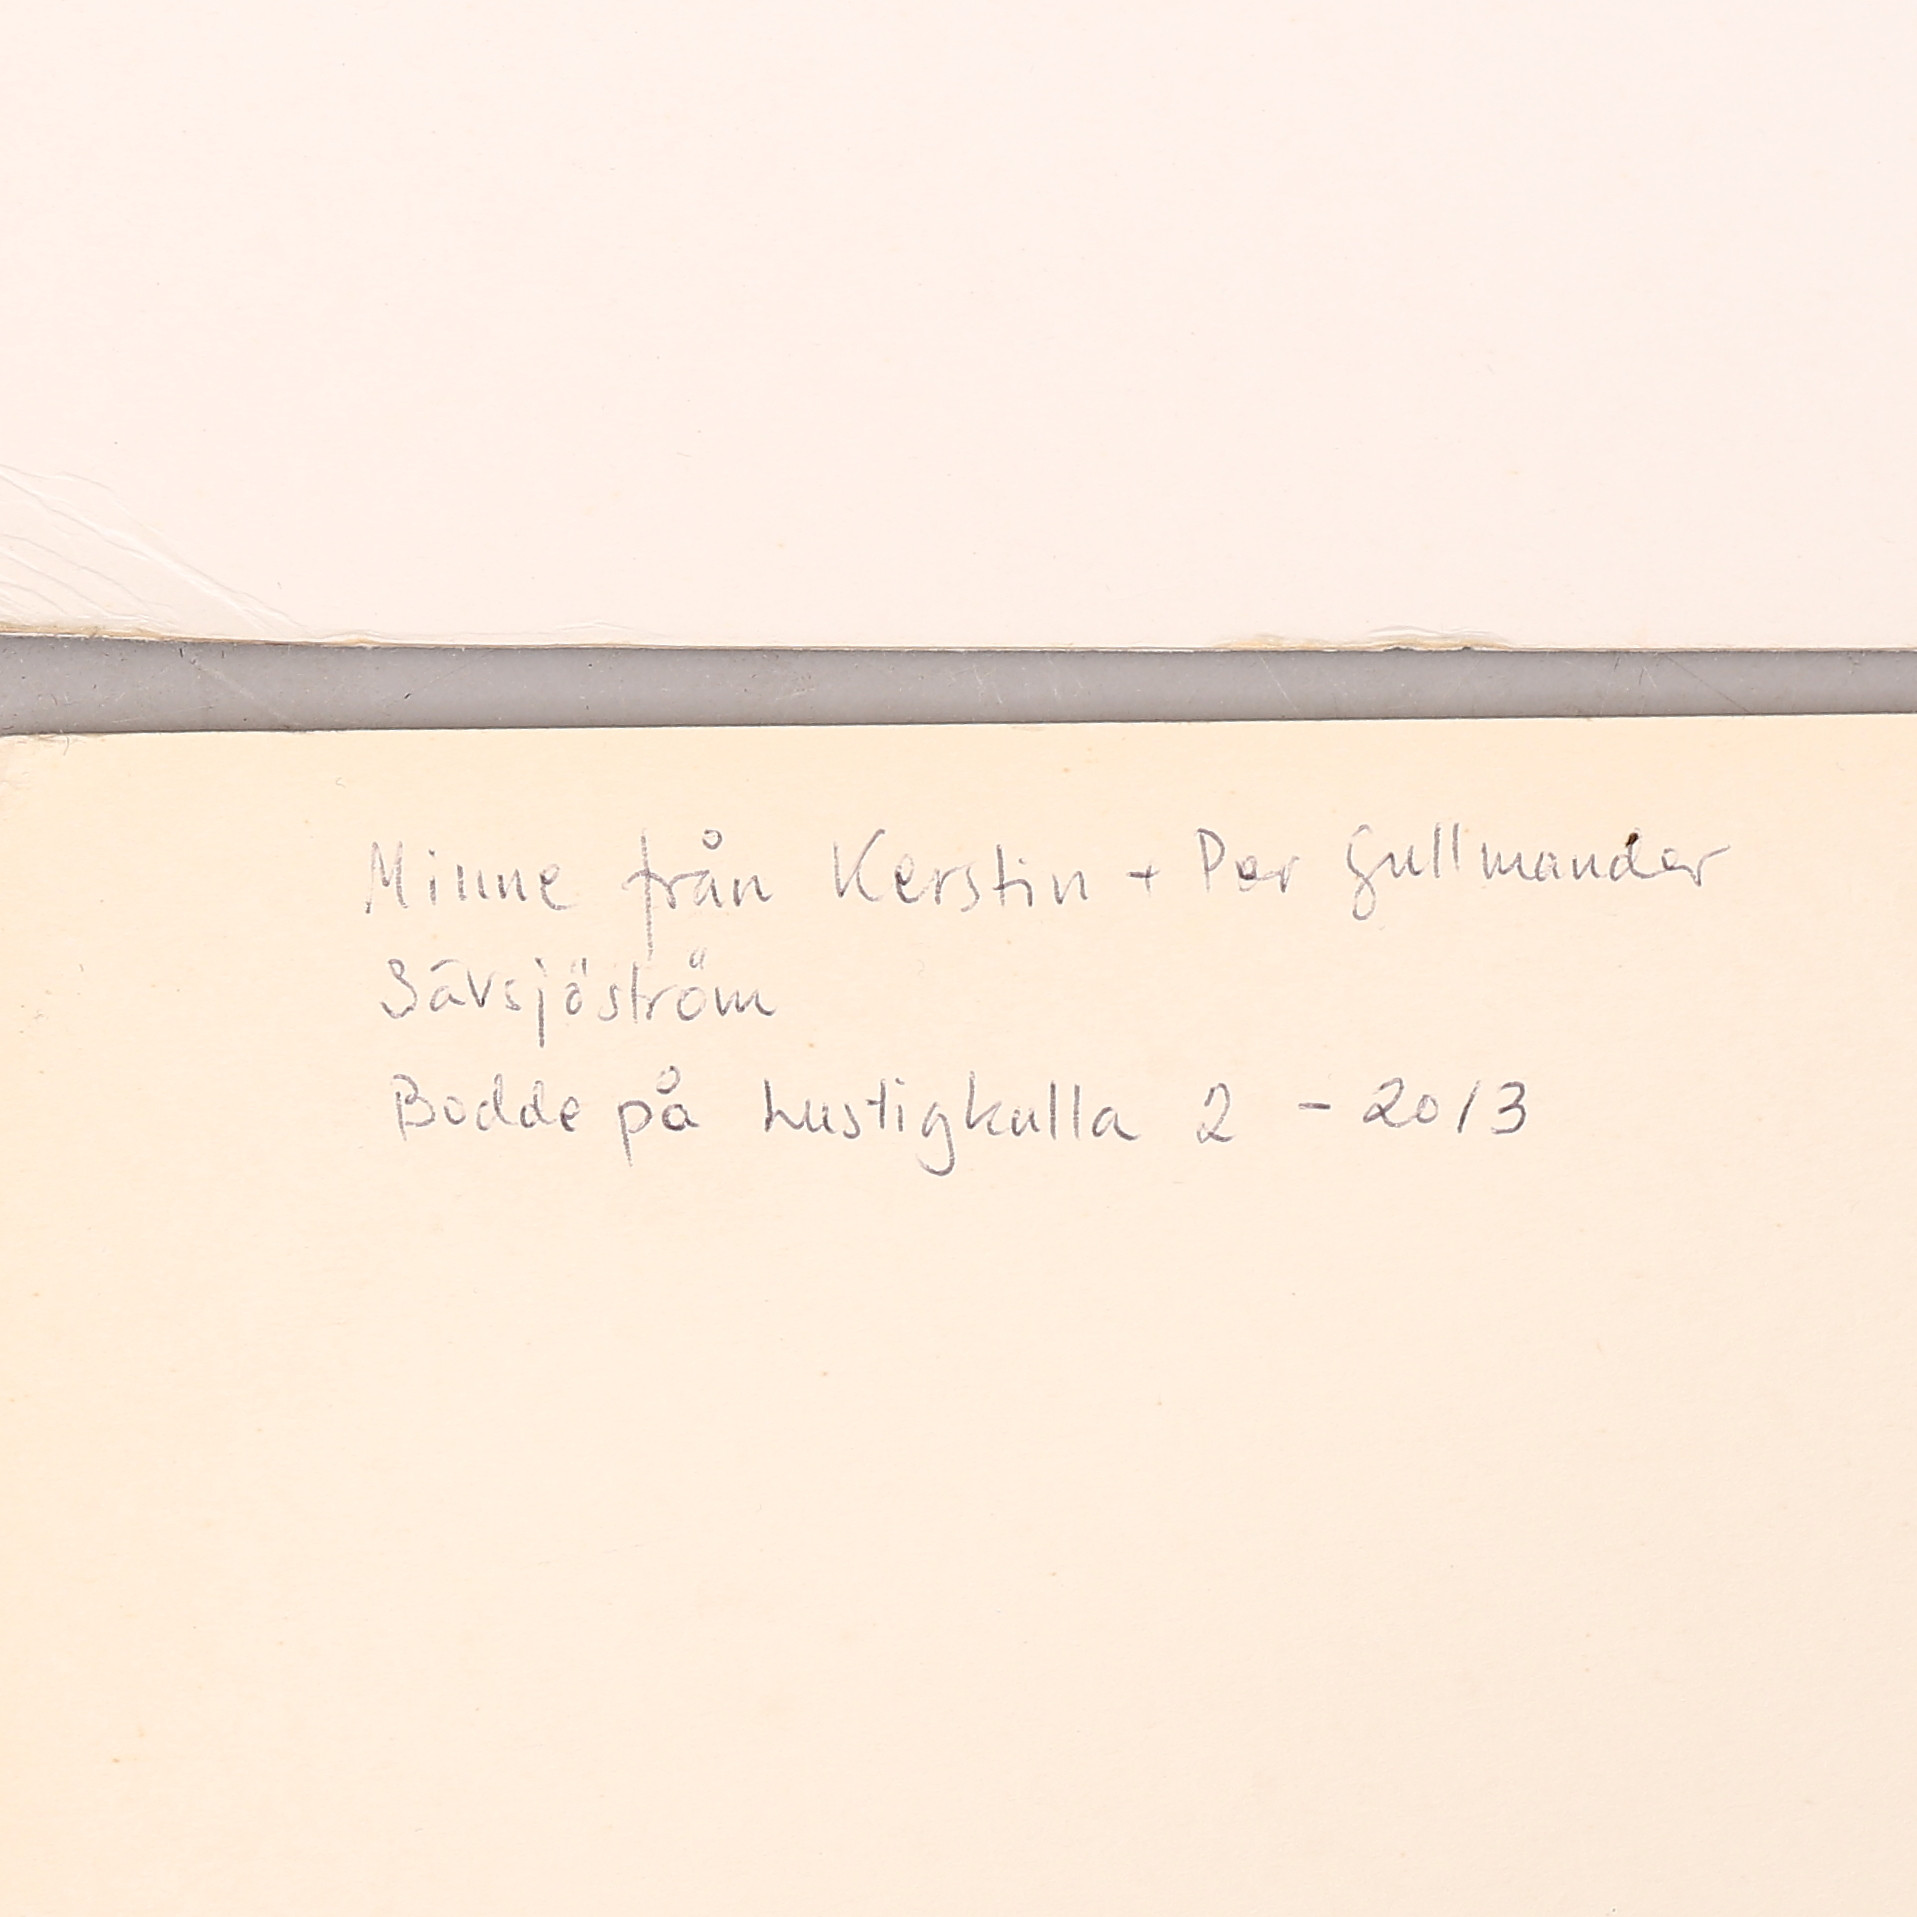 Minne från Kerstin + Per Gullmander
Sävsjöström
Bodde på Lustigkulla 2 - 2013